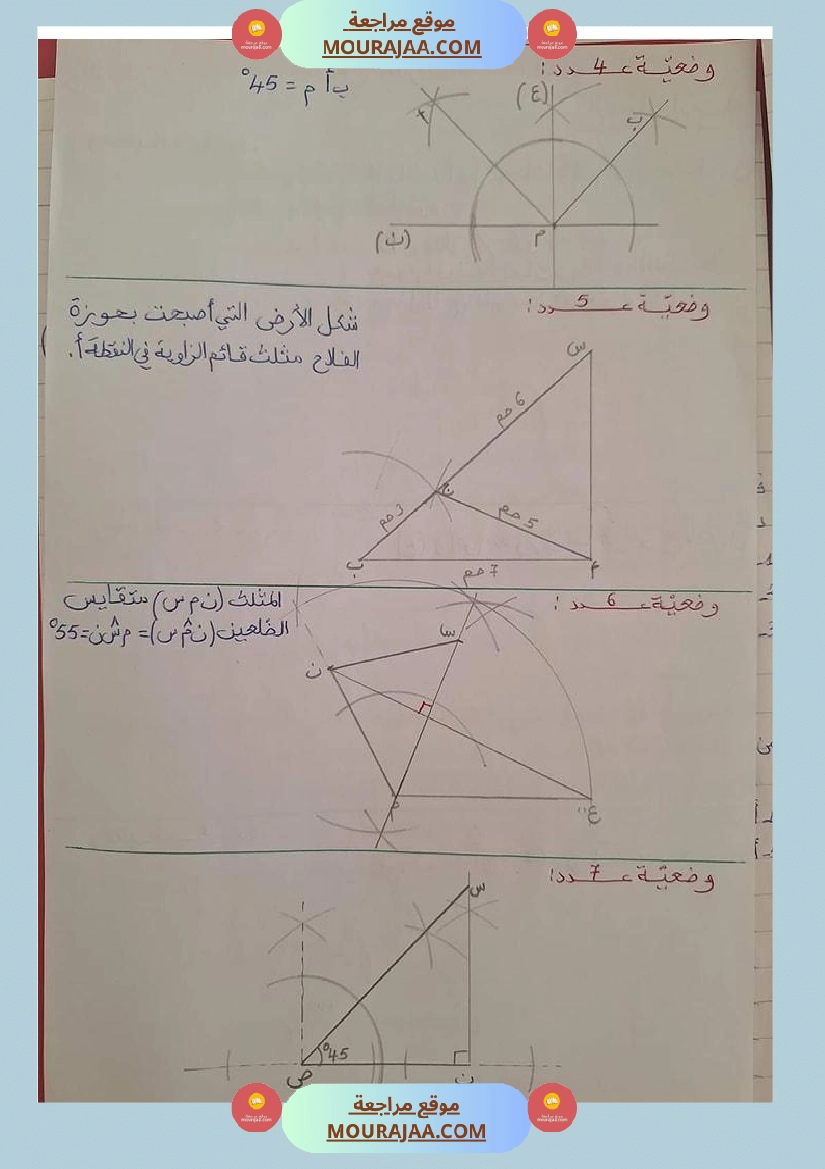 موقع مراجعة
MOURAJAA.COM
وضعيّة عـ4ـدد:
ب أ م = 45°
(ع)
ب
(ث)
م
وضعيّة عـ5ـدد:
شكل الأرض التي أصبحت بحوزة
الفلاح مثلث قائم الزاوية في النقطة أ.
س
6 صم
ج
3 صم
5 صم
ب
7 صم
أ
وضعيّة عـ6ـدد:
المثلث (ن م س) متقايس
الضلعين (ن م س) = م س ن = 55°
س
ن
م
ع
وضعيّة عـ7ـدد:
س
45°
ص
ن
موقع مراجعة
MOURAJAA.COM